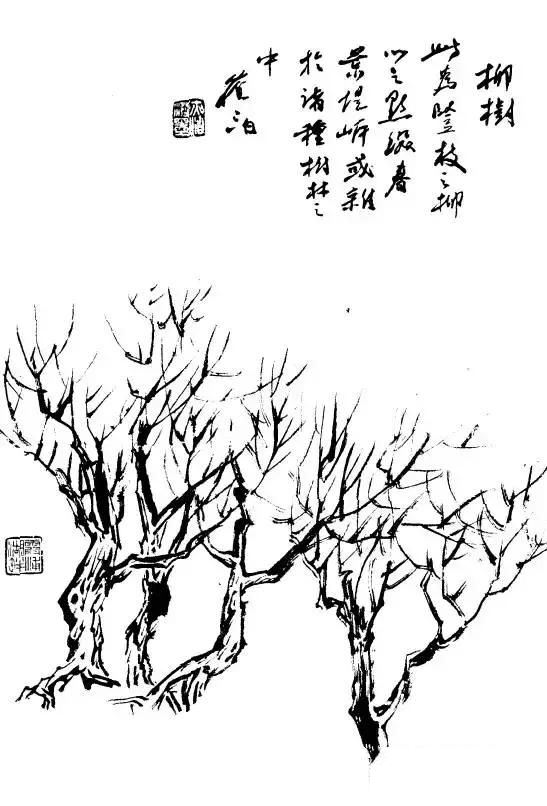 柳樹
此為豎枝之柳
以之點綴春
景堤岍或雜
於諸種樹林之
中